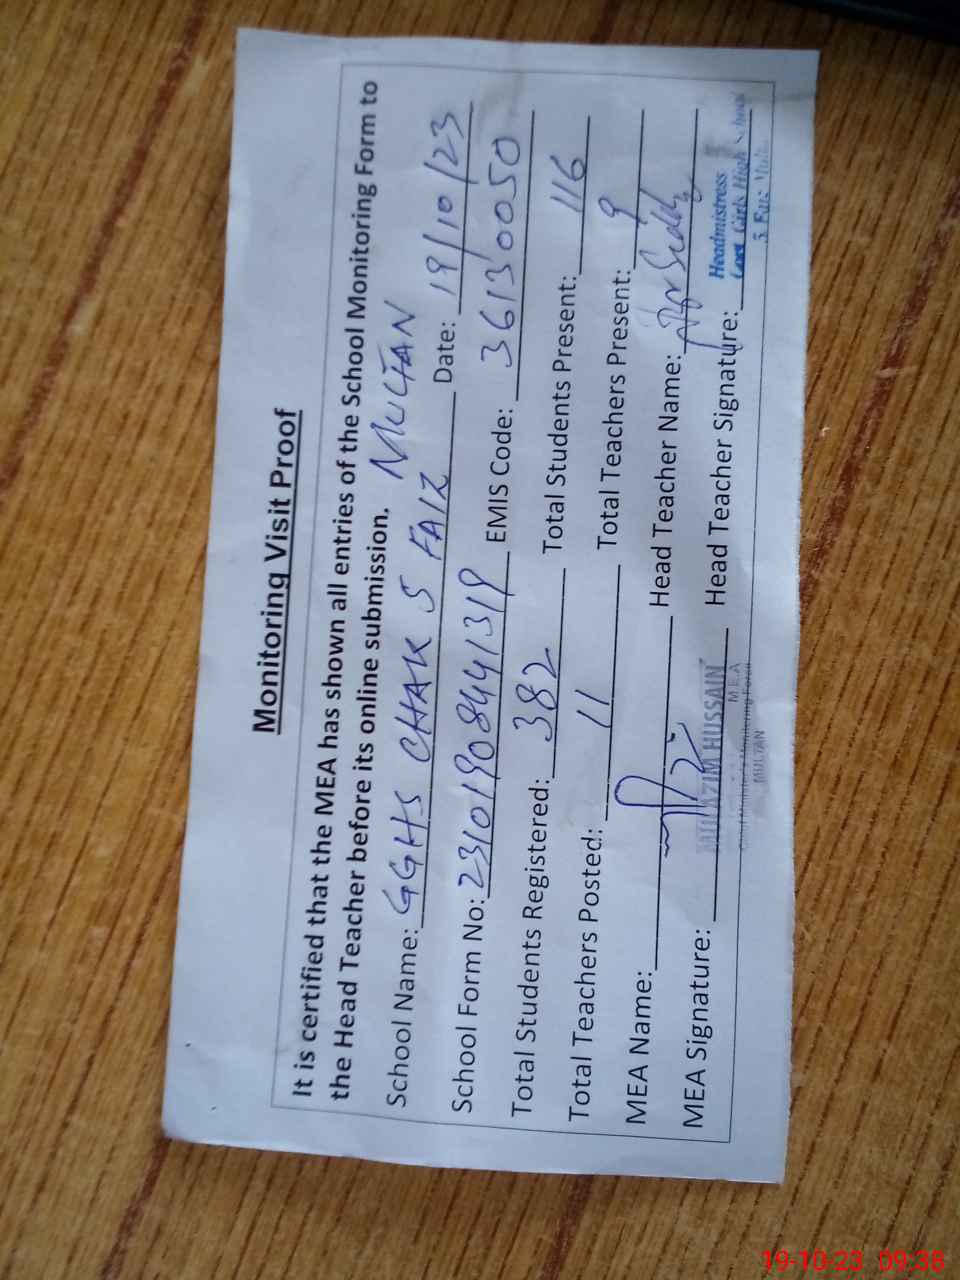 Monitoring Visit Proof
It is certified that the MEA has shown all entries of the School Monitoring Form to
the Head Teacher before its online submission.
School Name: GGHS CHAK 5 FAIZ MULTAN Date: 19/10/23
School Form No: 23101908441319 EMIS Code: 36130050
Total Students Registered: 382 Total Students Present: 116
Total Teachers Posted: 11 Total Teachers Present: 9
MEA Name: Head Teacher Name:
MEA Signature: Head Teacher Signature:
MULAZIM HUSSAIN
M.E.A
Chief Minister's Monitoring Force
MULTAN
Headmistress
Govt Girls High School
5 Faiz
19-10-23 09:38